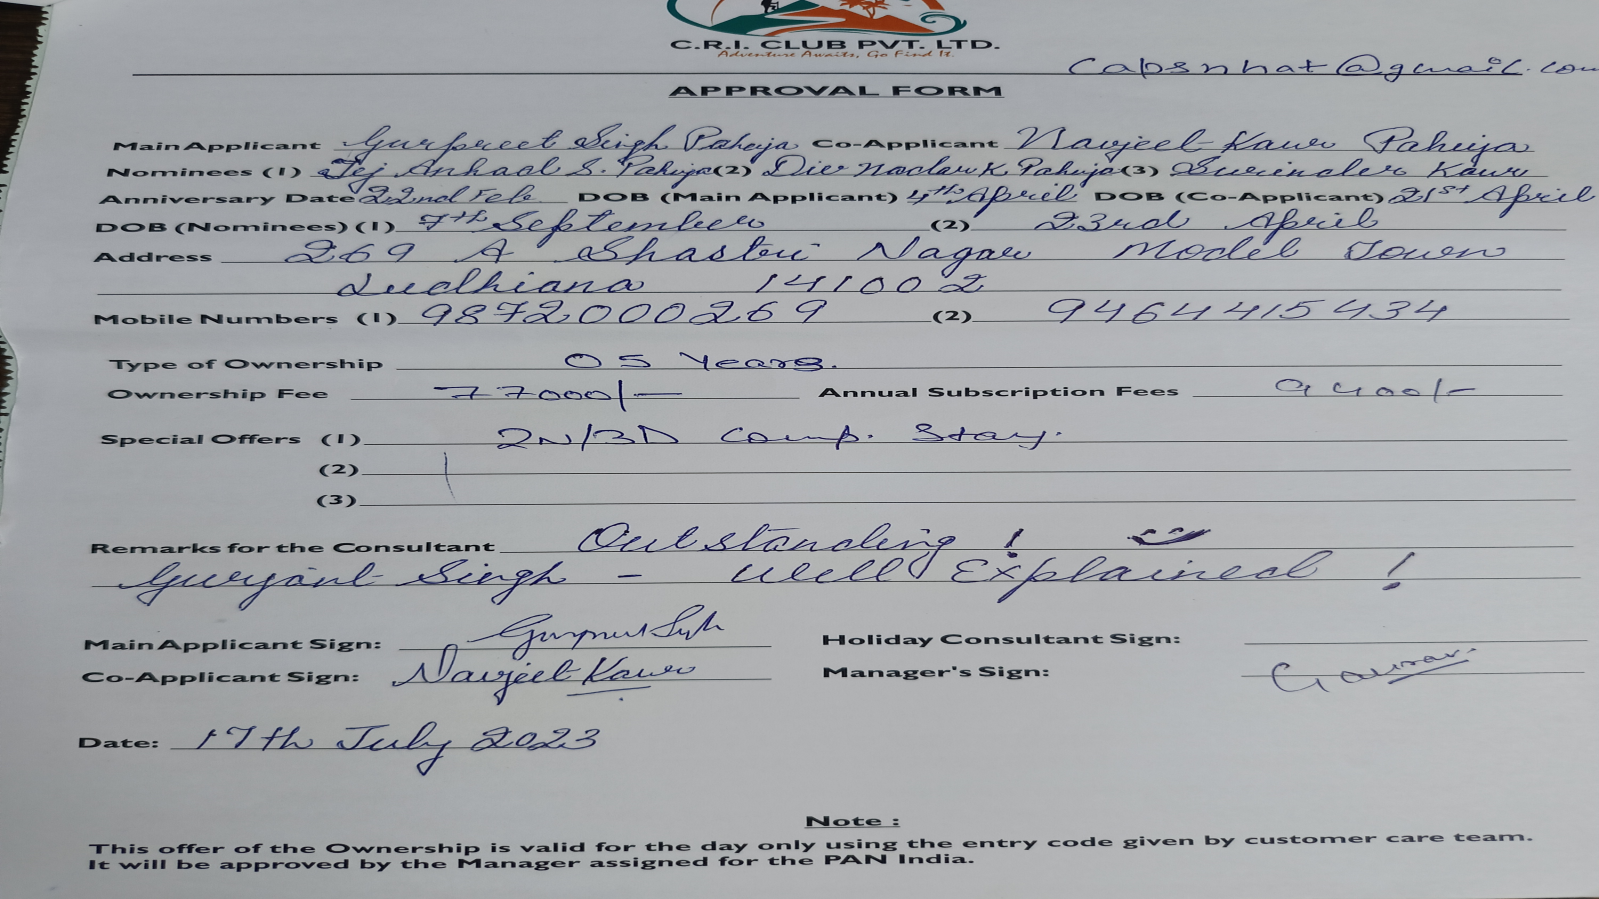 C.R.I. CLUB PVT. LTD.
Adventure Awaits, Go Find It.
capsnhat@gmail.com
APPROVAL FORM
Main Applicant Gurpreet Singh Pahuja Co-Applicant Navjeet Kaur Pahuja
Nominees (1) Tej Anhad S. Pahuja (2) Divo Naclau K. Pahuja (3) Surinder Kaur
Anniversary Date 22nd Feb DOB (Main Applicant) 4th April DOB (Co-Applicant) 21st April
DOB (Nominees) (1) 7th September (2) 23rd April
Address 269 A Shastri Nagar Model Town
Ludhiana 141002
Mobile Numbers (1) 9872000269 (2) 9464415434
Type of Ownership 05 Years.
Ownership Fee 77000/- Annual Subscription Fees 9400/-
Special Offers (1) 2N/3D Comp. Stay.
(2)
(3)
Remarks for the Consultant Outstanding !
Guryant Singh - Well Explained !
Main Applicant Sign: Gurpreet Singh Holiday Consultant Sign:
Co-Applicant Sign: Navjeet Kaur Manager's Sign: Gaurav
Date: 17th July 2023
Note :
This offer of the Ownership is valid for the day only using the entry code given by customer care team.
It will be approved by the Manager assigned for the PAN India.